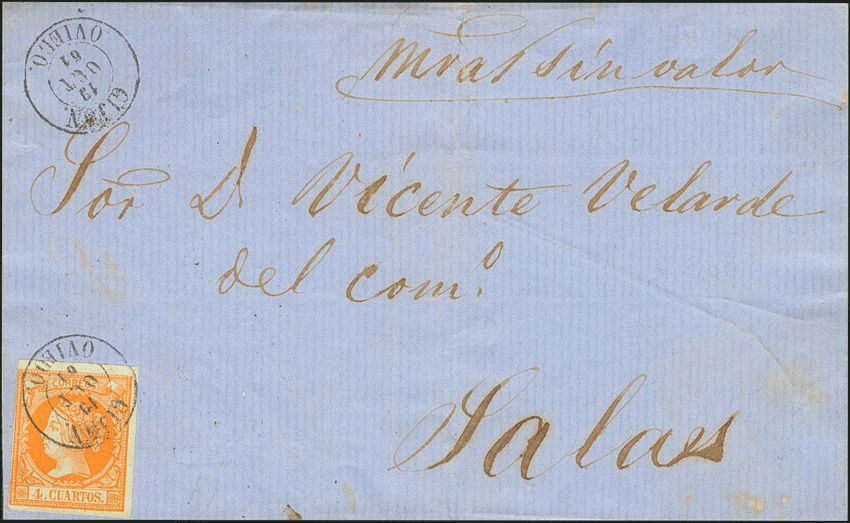 Mras sin valor
Sor D Vicente Velarde
del como.
Salas
OVIEDO.
19
OCT
61
GIJON
OVIEDO
19
OCT
61
GIJON
CORREOS
4. CUARTOS.